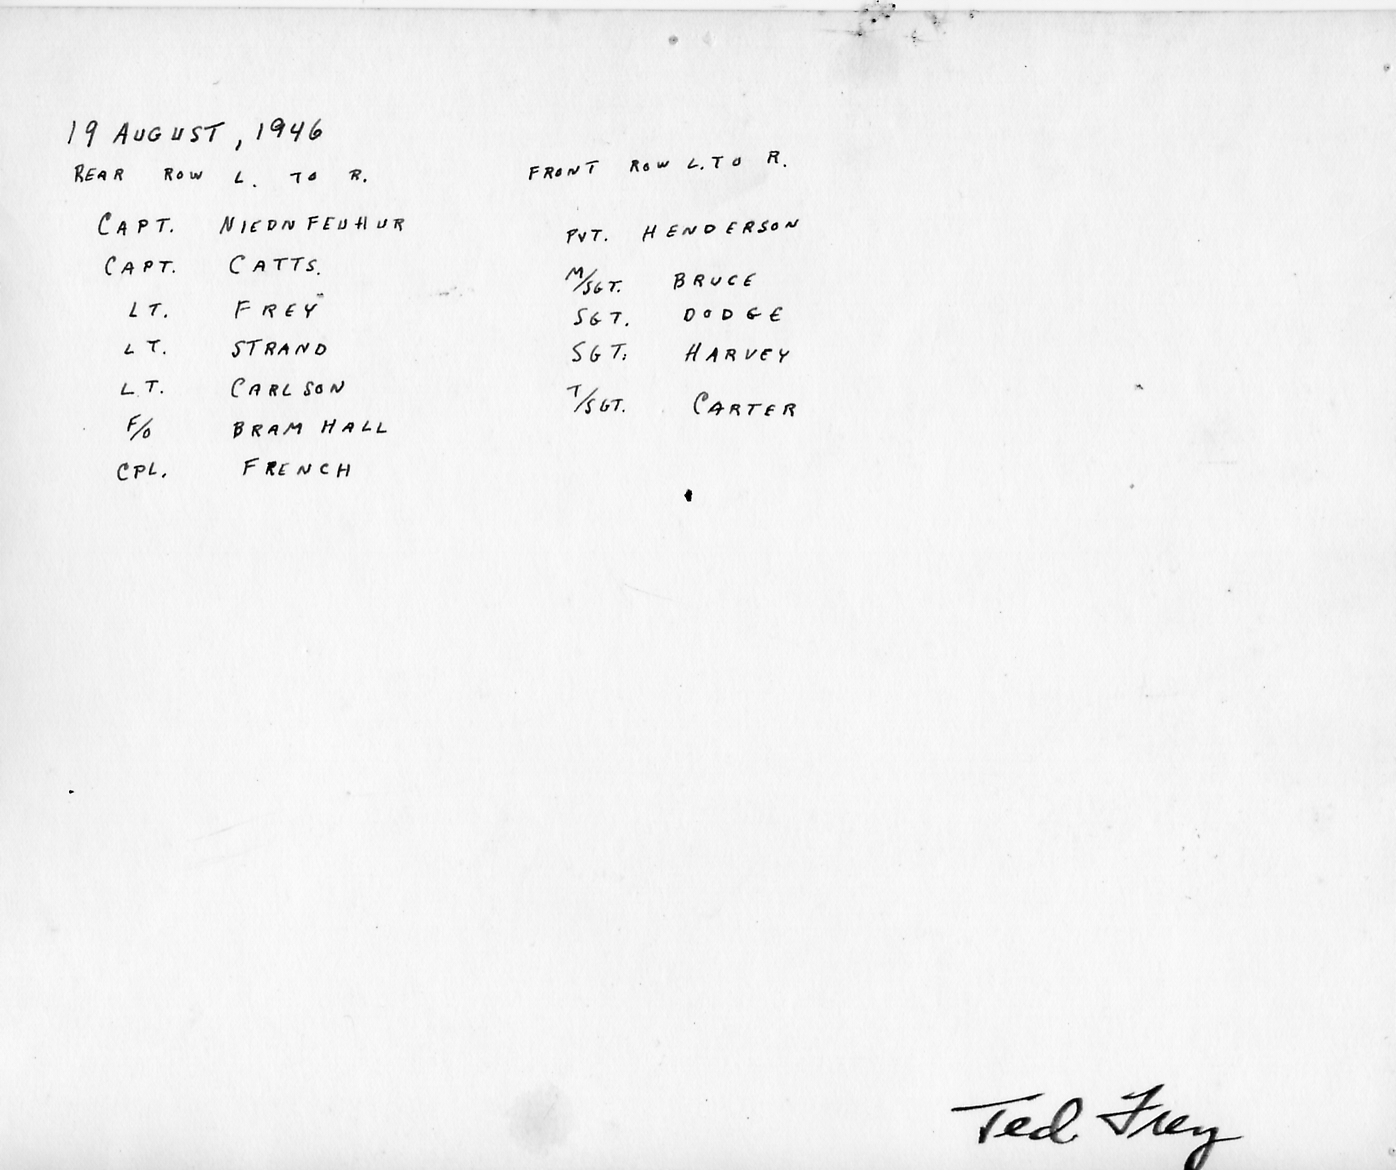 19 AUGUST, 1946
REAR ROW L. TO R.
CAPT. NIEDNFEUHUR
CAPT. CATTS.
LT. FREY
LT. STRAND
LT. CARLSON
F/O BRAMHALL
CPL. FRENCH
FRONT ROW L. TO R.
PVT. HENDERSON
M/SGT. BRUCE
SGT. DODGE
SGT. HARVEY
T/SGT. CARTER
Ted Frey